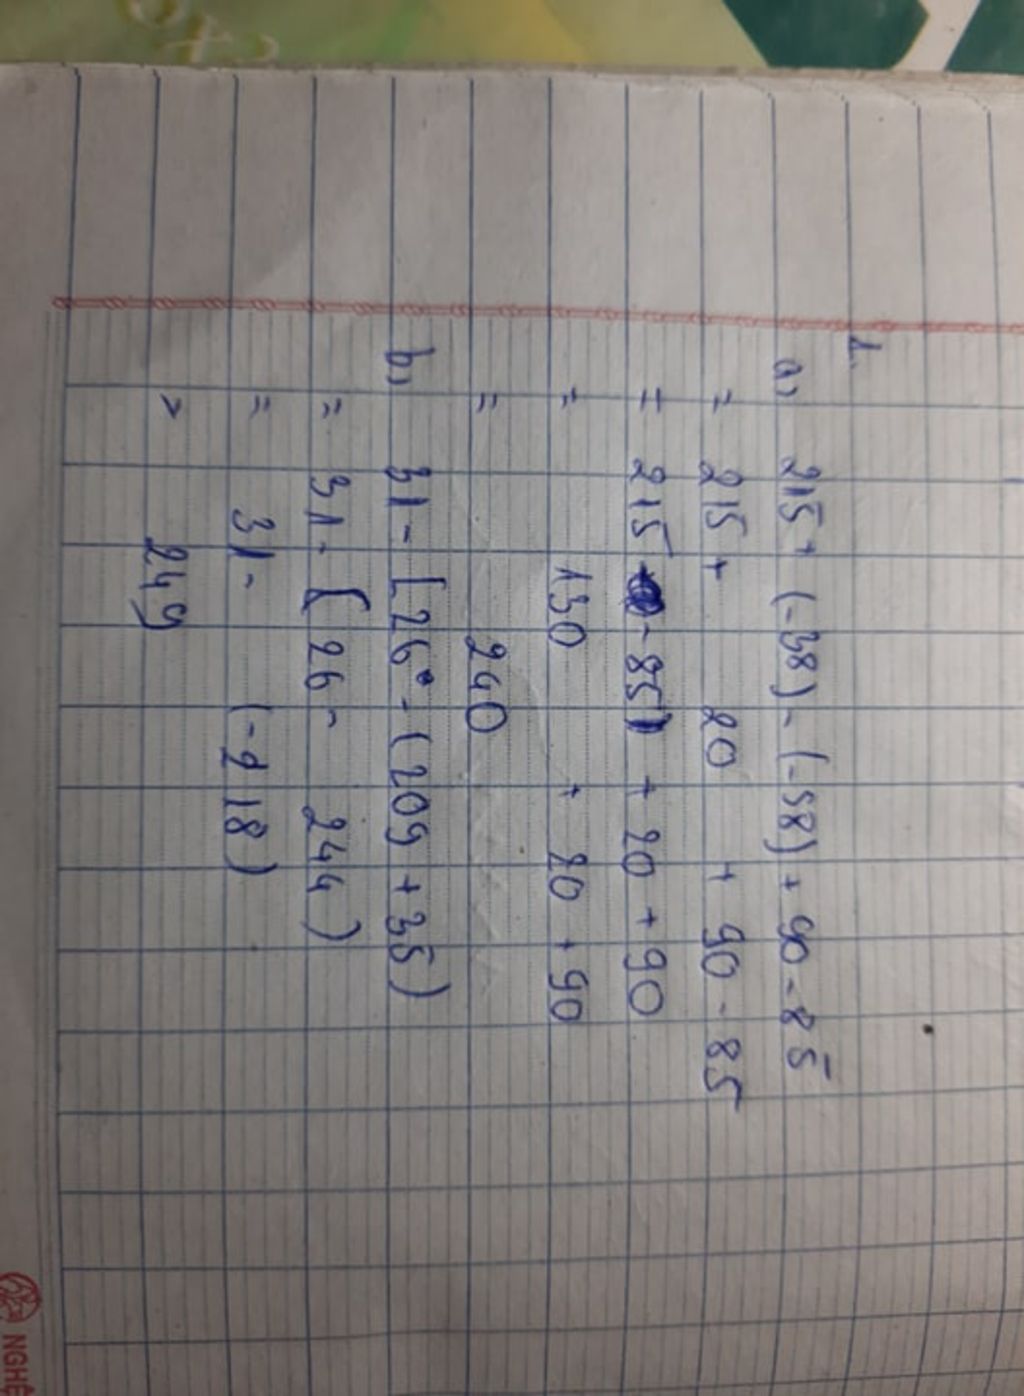 1.
a) 215 + (-38) - (-58) + 90 - 85
= 215 + 20 + 90 - 85
= 215 - 85) + 20 + 90
= 130 + 20 + 90
= 240
b) 31 - [26 - (209 + 35)
= 31 - [26 - 244)
= 31 - (-218)
= 249
NGHỆ